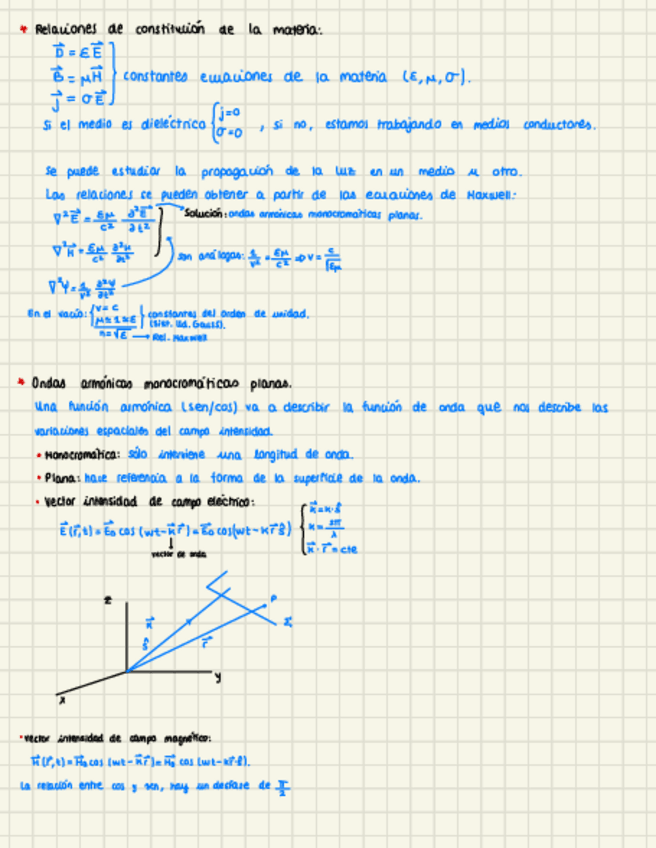 * Relaciones de constitución de la materia:
D⃗ = εE⃗
B⃗ = μH⃗ } constantes ecuaciones de la materia (ε, μ, σ).
j⃗ = σE⃗
Si el medio es dieléctrico { j=0 σ=0 , si no, estamos trabajando en medios conductores.
Se puede estudiar la propagación de la luz en un medio u otro.
Las relaciones se pueden obtener a partir de las ecuaciones de Maxwell:
∇²E⃗ = εμ/c² ∂²E⃗/∂t² → Solución: ondas armónicas monocromáticas planas.
∇²H⃗ = εμ/c² ∂²H/∂t² son análogas: 1/v² = εμ/c² ⇒ v = c/√εμ
∇²Ψ = 1/v² ∂²Ψ/∂t²
En el vacío: { v = c
μ ≈ 1 ≈ ε } constantes del orden de unidad.
(Sist. Ud. Gauss).
n = √ε → Rel. Maxwell
* Ondas armónicas monocromáticas planas.
Una función armónica (sen/cos) va a describir la función de onda que nos describe las
variaciones espaciales del campo intensidad.
• Monocromática: sólo interviene una longitud de onda.
• Plana: hace referencia a la forma de la superficie de la onda.
• Vector intensidad de campo eléctrico:
E⃗(r⃗,t) = E⃗₀ cos (wt - k⃗r⃗) = E⃗₀ cos(wt - kr⃗ŝ) { k⃗ = k·ŝ
k = 2π/λ
k⃗·r⃗ = cte
vector de onda
z
P
k⃗
Σ
ŝ
r⃗
y
x
• Vector intensidad de campo magnético:
H⃗(r⃗,t) = H⃗₀ cos (wt - k⃗r⃗) = H⃗₀ cos (wt - kr⃗·ŝ).
La relación entre cos y sen, hay un desfase de π/2